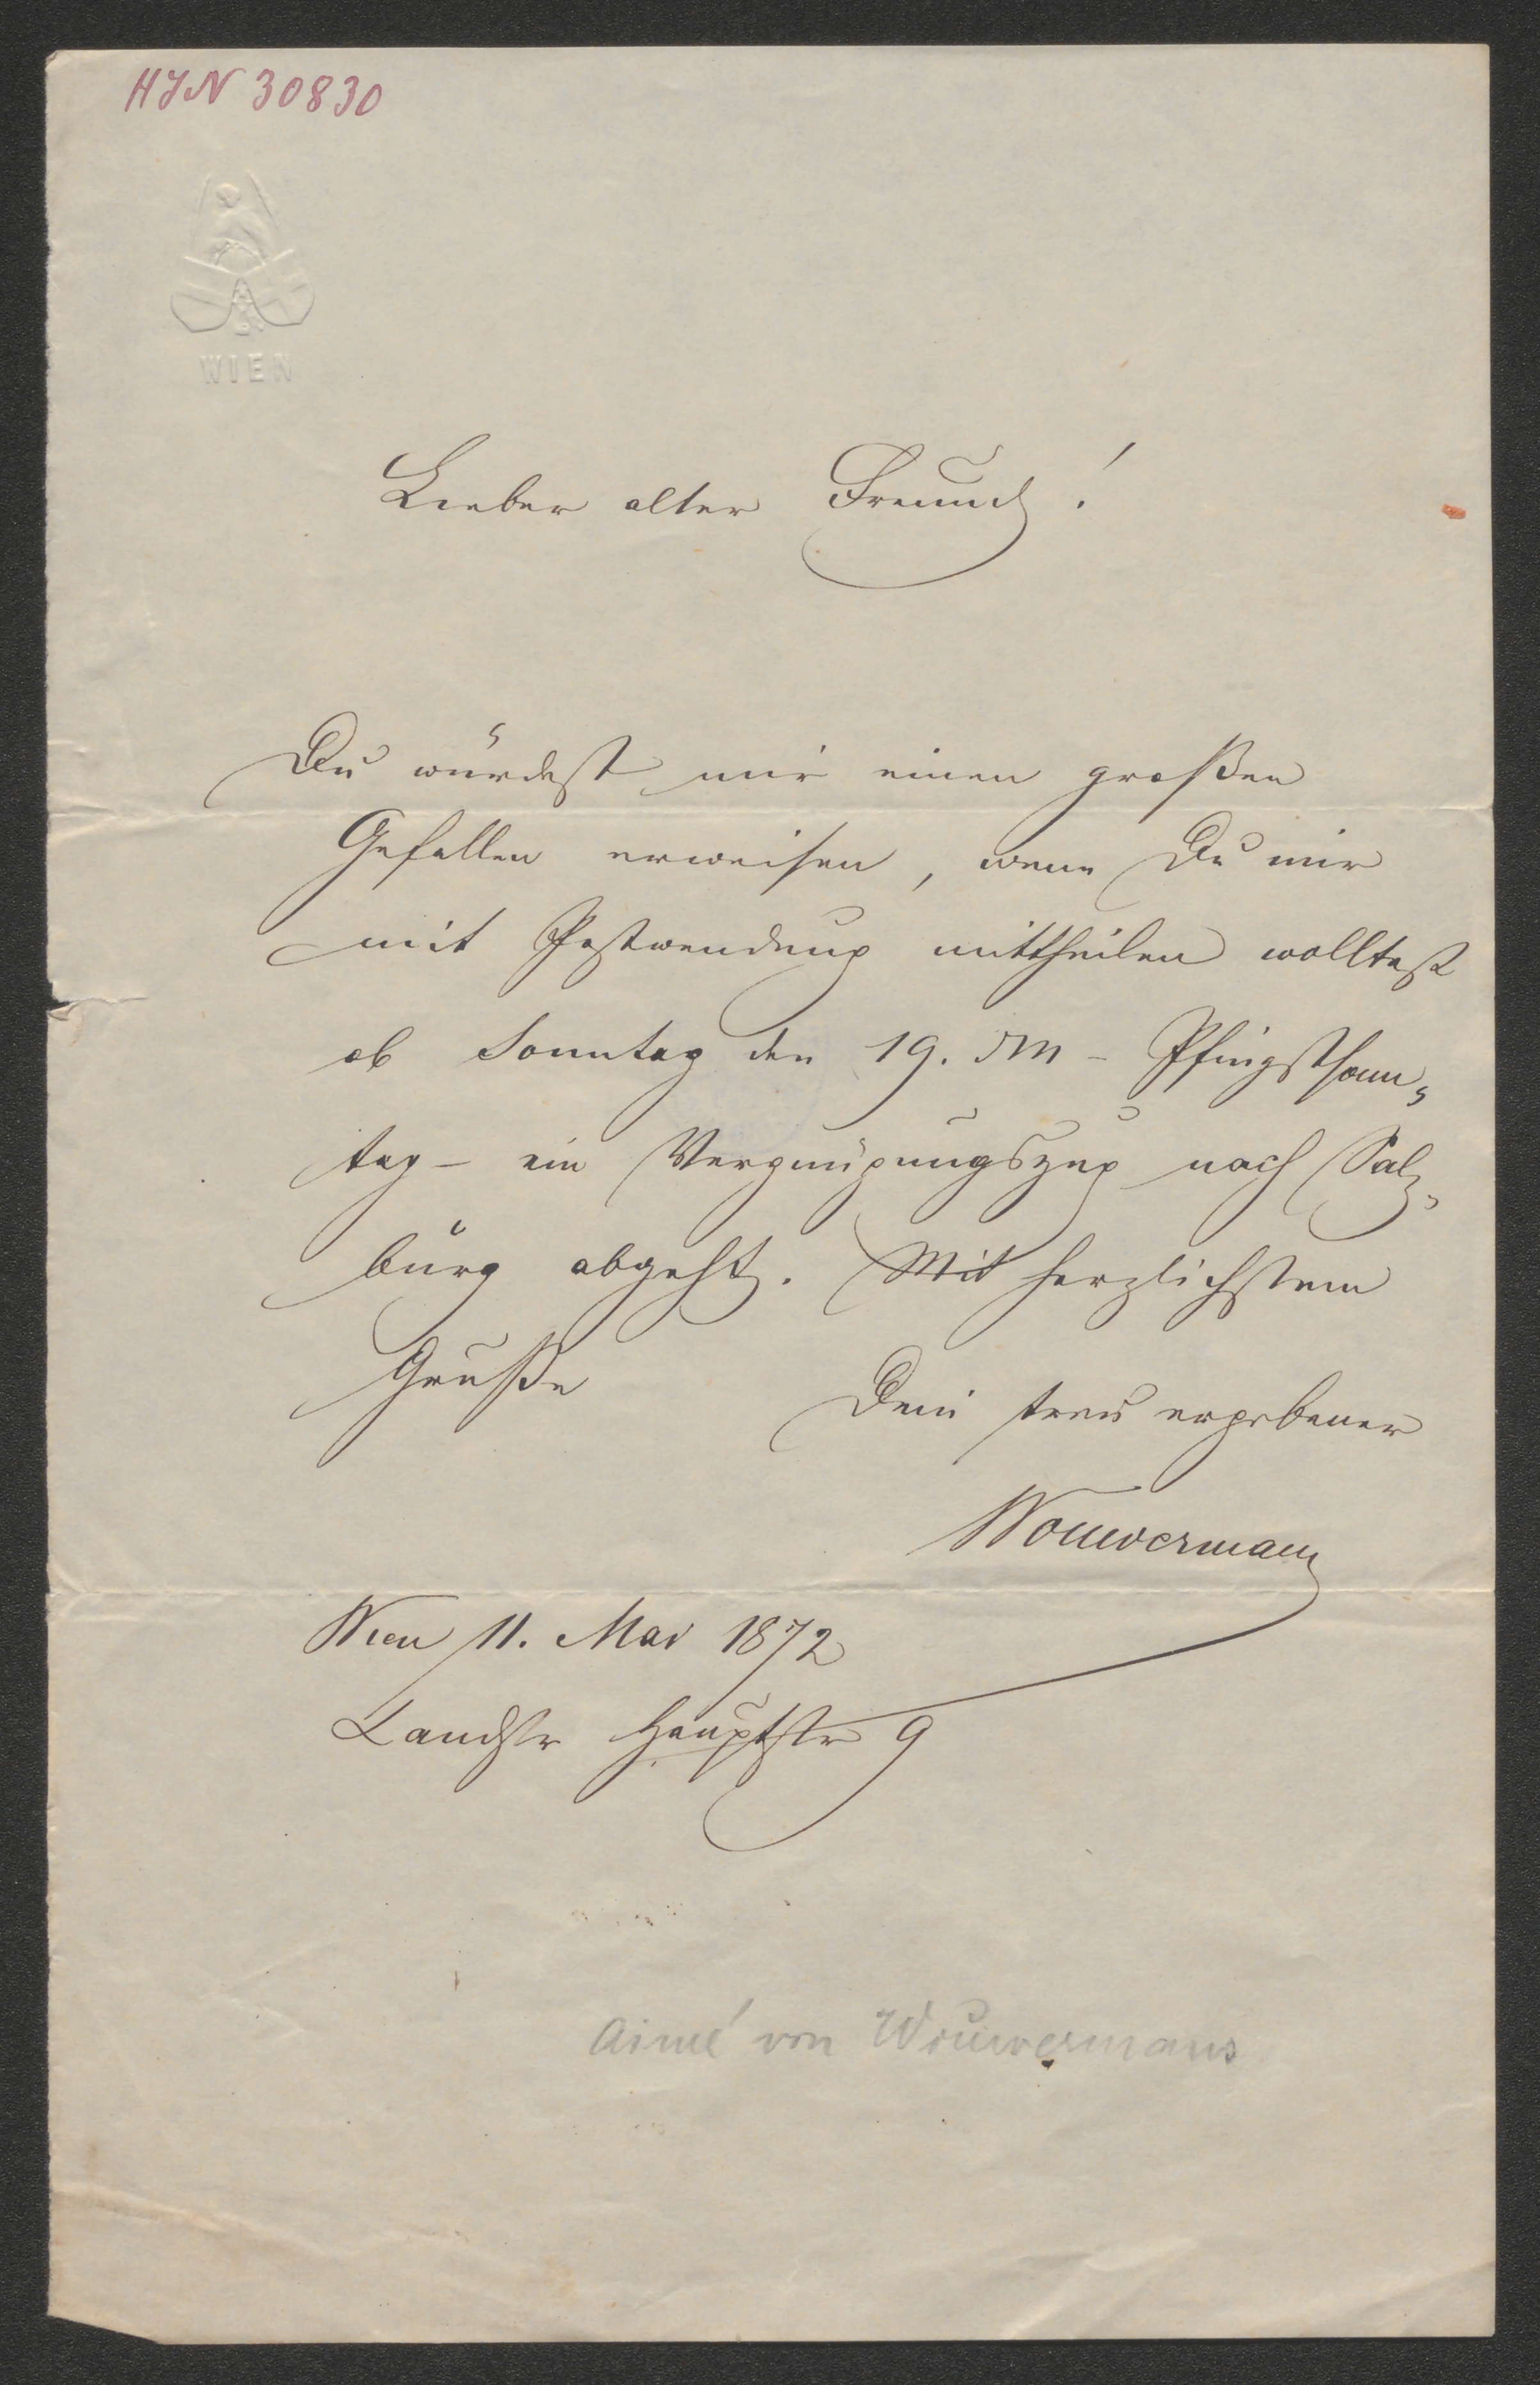 HJN 30830
WIEN
Lieber alter Freund!
Du würdest mir einen großen
Gefallen erweisen, wenn Du mir
mit Postwendung mittheilen wolltest
ob Sonntag den 19. d M - Pfingstsonn-
tag - ein Vergnügungszug nach Salz-
burg abgeht. Mit herzlichstem
Gruße
Dein treu ergebener
Wouwermans
Wien 11. Mai 1872
Landstr Hauptstr 9
Aimé von Wouwermans